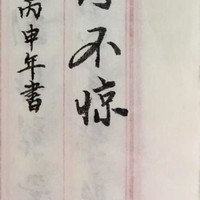 不惊
丙申年書